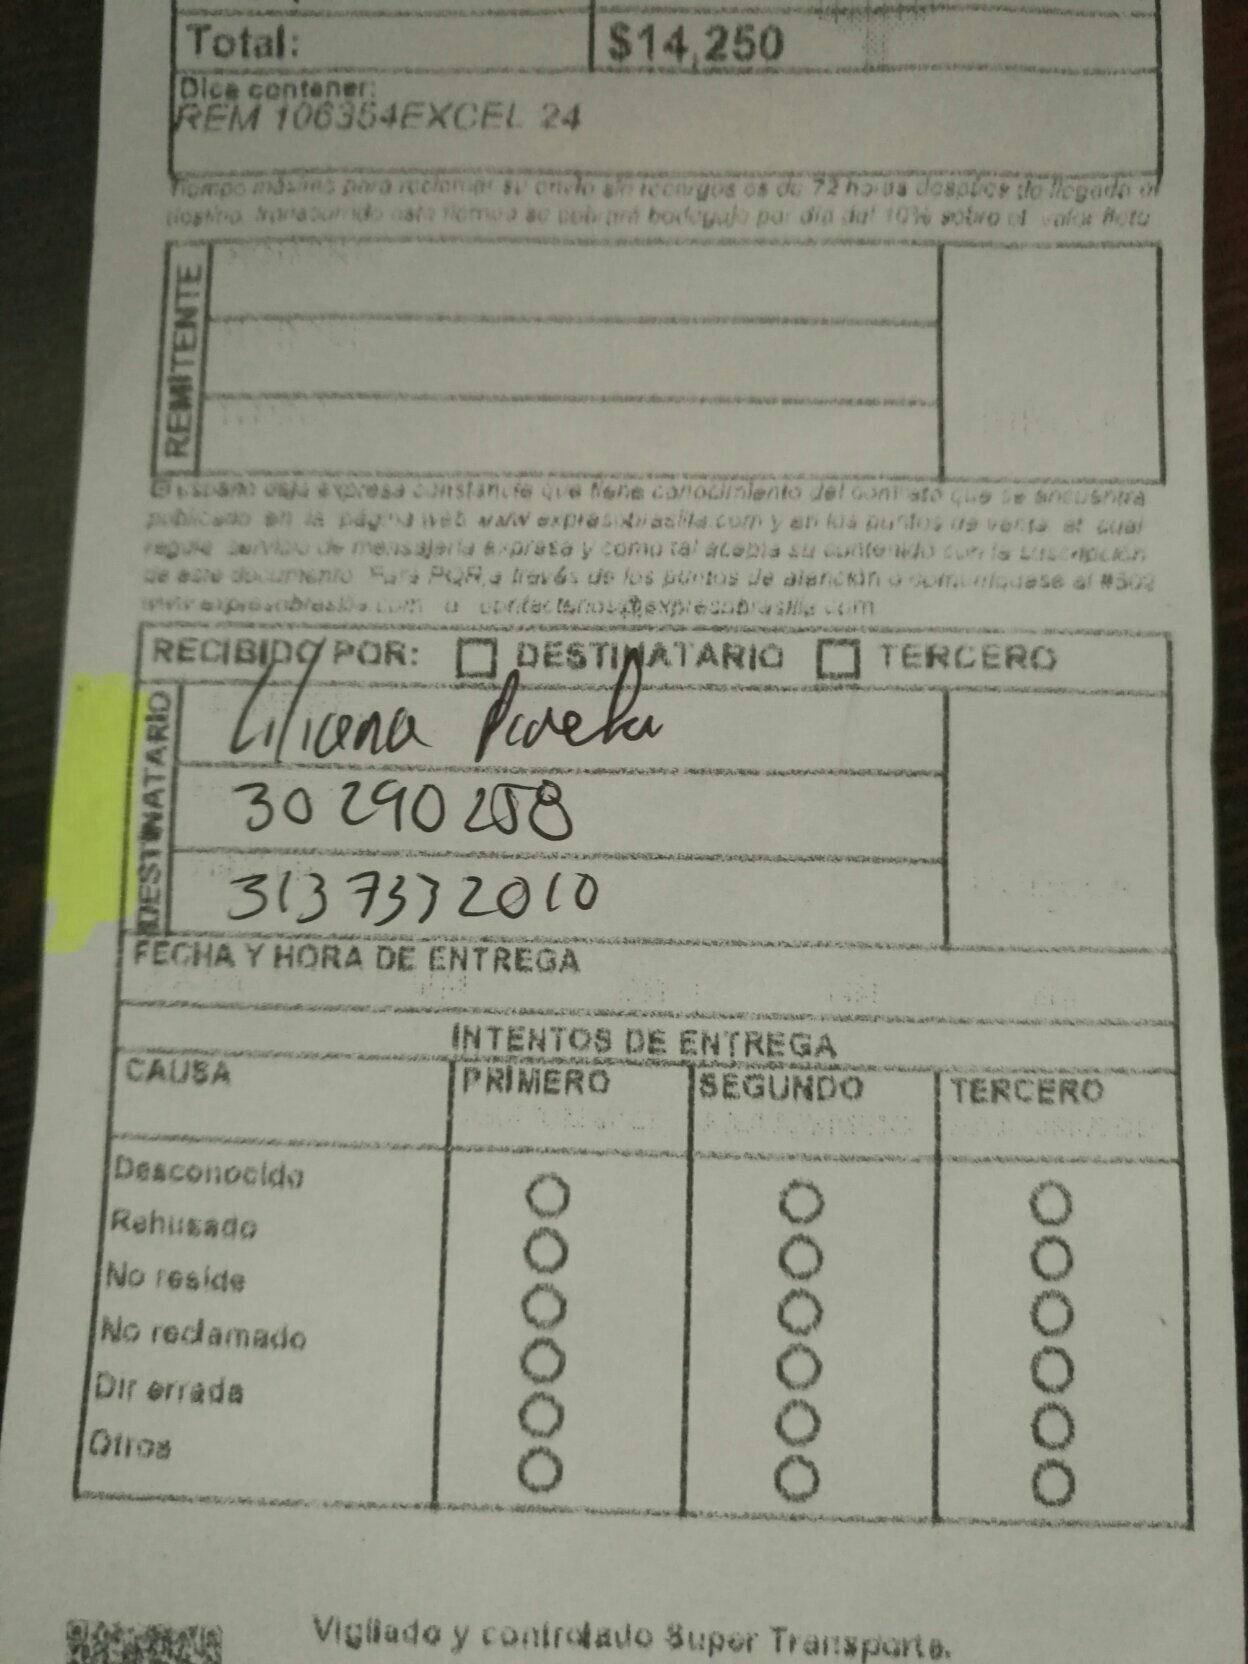 Total: $14,250
Dice contener:
REM 106354EXCEL 24
Tiempo máximo para reclamar su envío sin recargos es de 72 horas después de llegado al
destino, transcurrido este tiempo se cobrará bodegaje por día del 10% sobre el valor flete
REMITENTE
El usuario deja expresa constancia que tiene conocimiento del contrato que se encuentra
publicado en la página web www.expresobrasilia.com y en los puntos de venta, el cual
regula servicio de mensajería expresa y como tal acepta su contenido con la suscripción
de este documento. Para PQR,a través de los puntos de atención o comuníquese al #502
www.expresobrasilia.com o contactenos@expresobrasilia.com
RECIBIDO POR: DESTINATARIO TERCERO
DESTINATARIO
Liliana
30290258
3137332010
FECHA Y HORA DE ENTREGA
INTENTOS DE ENTREGA
CAUSA PRIMERO SEGUNDO TERCERO
Desconocido
Rehusado
No reside
No reclamado
Dir errada
Otros
Vigilado y controlado Super Transporte.